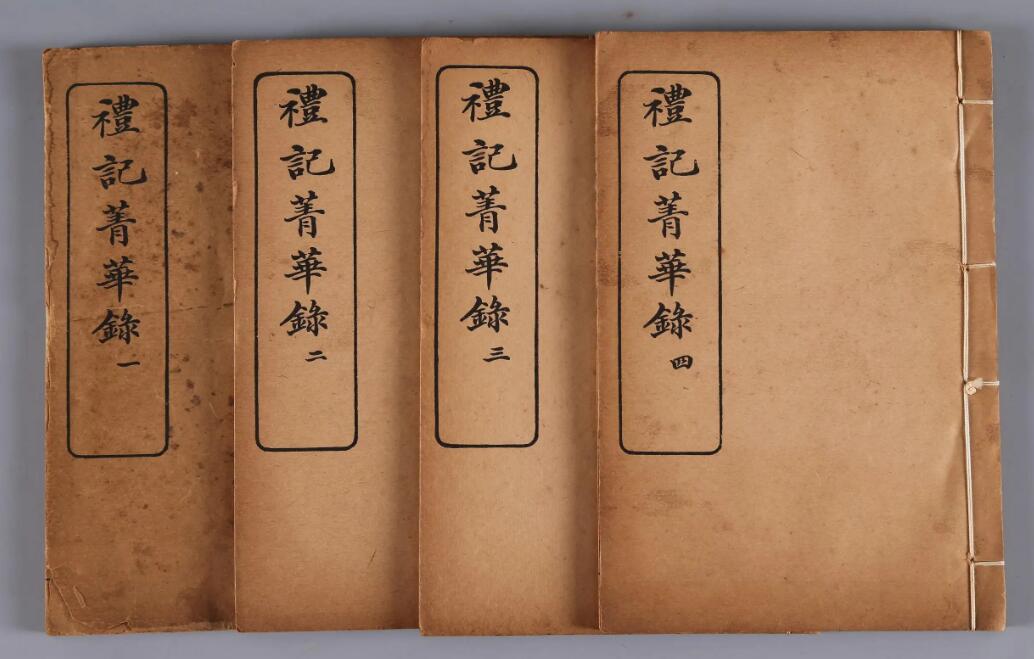 禮記菁華錄 一
禮記菁華錄 二
禮記菁華錄 三
禮記菁華錄 四